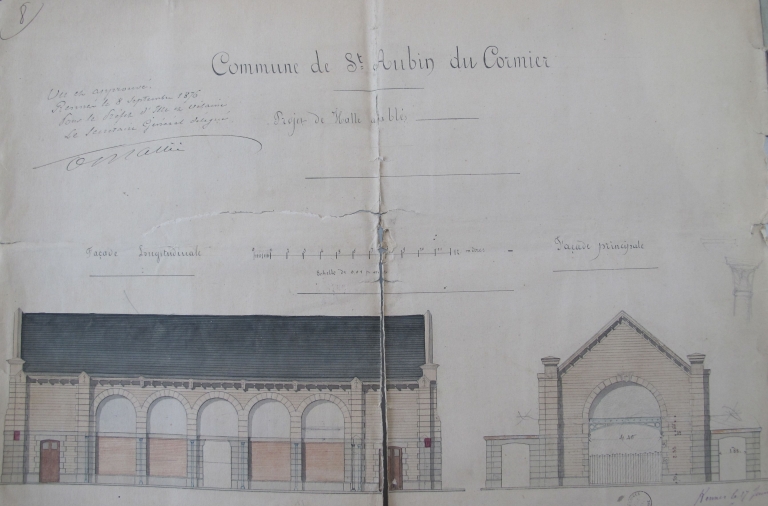 8
Commune de St Aubin du Cormier
Vu et approuvé
Rennes le 8 Septembre 1876
Pour le Préfet d'Ille et Vilaine
Le Secrétaire Général délégué
Projet de Halle au blé
Façade Longitudinale
Façade principale
Echelle de
Rennes le